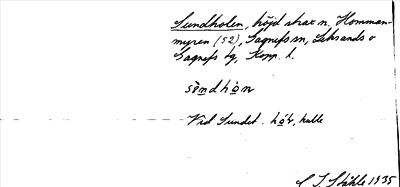 Sundholen, höjd strax n. Homman-
myren (52), Gagnefs sn, Leksands o
Gagnefs tg, Kopp. l.
sɵ̀ndhòn
Vid Sundet. hó̢ɫ, kulle
C I Ståhle 1935